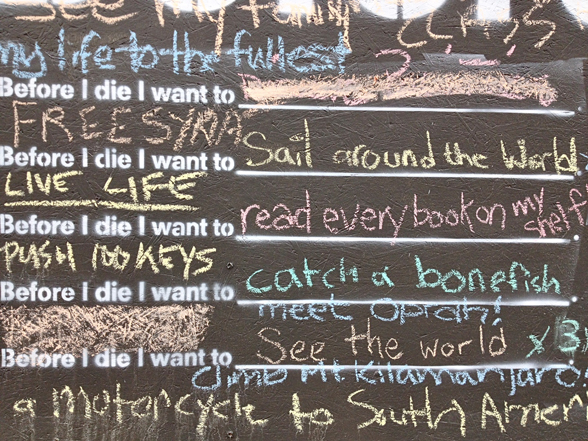 see my
my life to the fullest
Before I die I want to
FREE SYRIA
Before I die I want to Sail around the World
LIVE LIFE
Before I die I want to read every book on my shelf
PUSH 100 KEYS
Before I die I want to catch a bonefish
meet Oprah!
Before I die I want to See the world x3
climb Mt Kilamanjaro
a motorcycle to South Amer